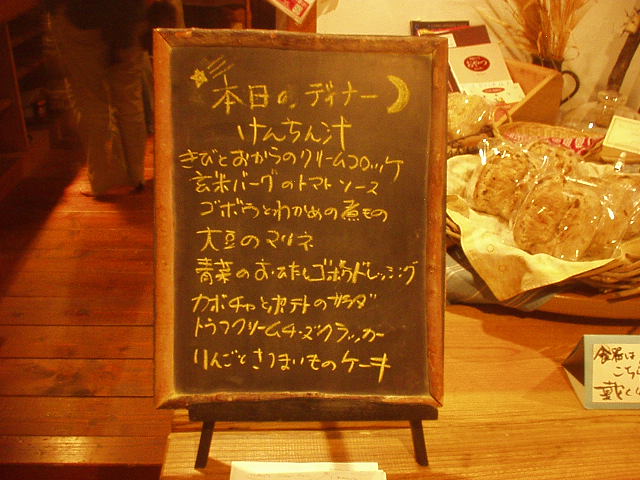 本日のディナー
けんちん汁
きびとおからのクリームコロッケ
玄米バーグのトマトソース
ゴボウとわかめの煮もの
大豆のマリネ
青菜のおひたしゴボウドレッシング
カボチャとポテトのサラダ
トウフクリームチーズクラッカー
りんごとさつまいものケーキ
食器は
こちら
戴く